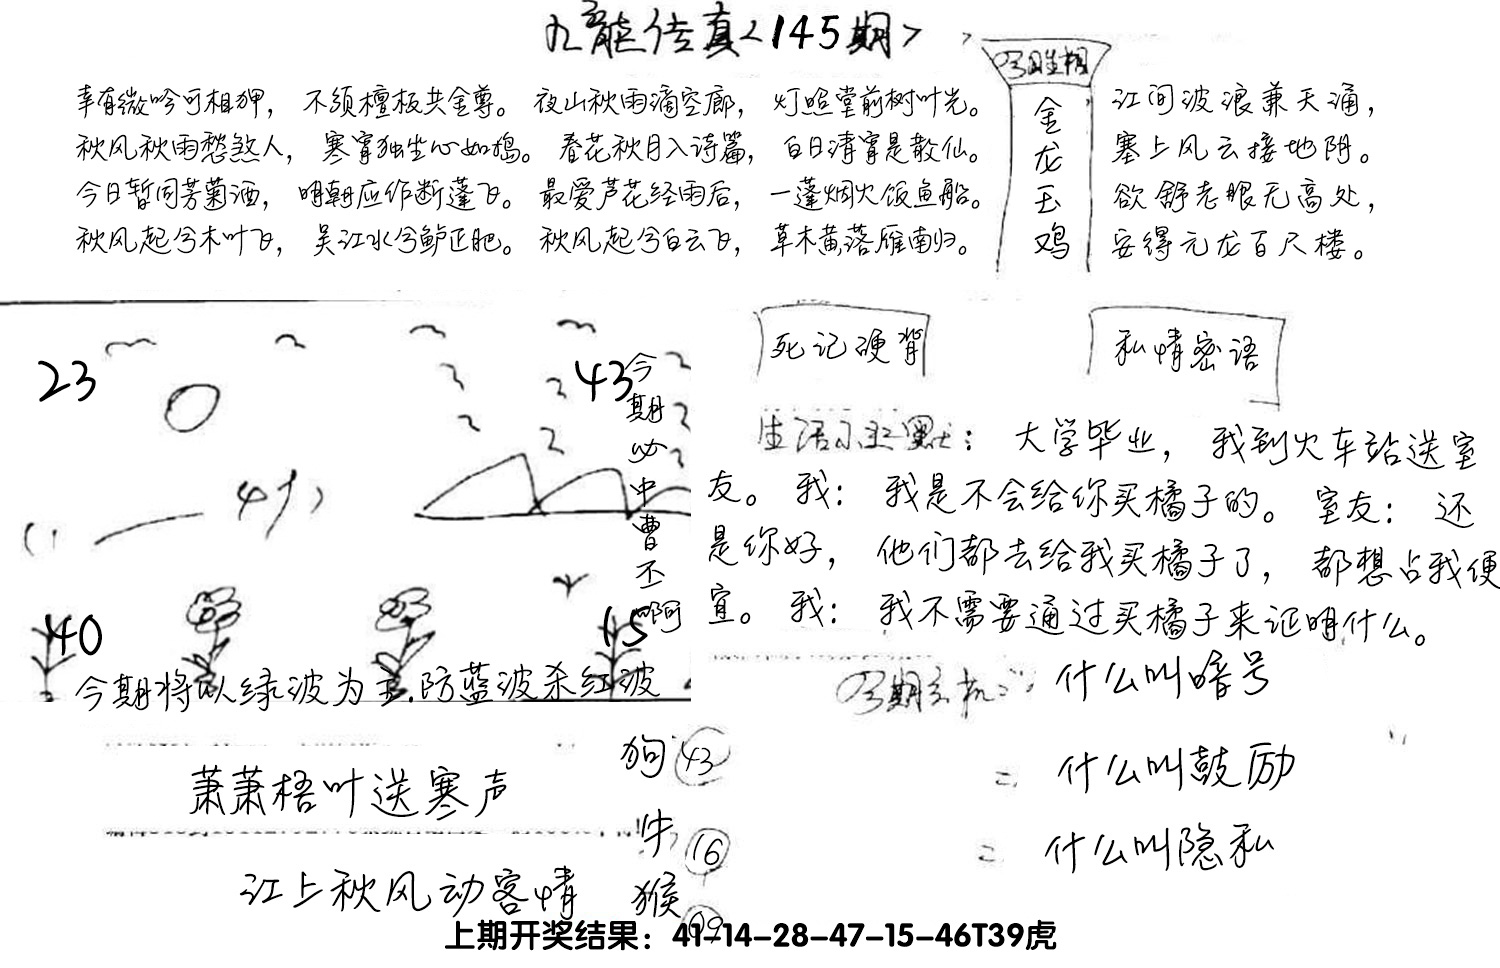 九龍传真<145期>
幸有微吟可相狎， 不须檀板共金尊。 夜山秋雨滴空廊， 灯照堂前树叶光。
秋风秋雨愁煞人， 寒宵独坐心如捣。 春花秋月入诗篇， 白日清宵是散仙。
今日暂同芳菊酒， 明朝应作断蓬飞。 最爱芦花经雨后， 一蓬烟火饭鱼船。
秋风起兮木叶飞， 吴江水兮鲈正肥。 秋风起兮白云飞， 草木黄落雁南归。
金
龙
玉
鸡
江间波浪兼天涌，
塞上风云接地阴。
欲舒老眼无高处，
安得元龙百尺楼。
23
43
今
期
必
中
曹
不
啊
40
15
今期将以绿波为主.防蓝波杀红波
死记硬背
私情密语
生活小幽默： 大学毕业， 我到火车站送室
友。 我： 我是不会给你买橘子的。 室友： 还
是你好， 他们都去给我买橘子了， 都想占我便
宜。 我： 我不需要通过买橘子来证明什么。
什么叫暗号
二 什么叫鼓励
二 什么叫隐私
萧萧梧叶送寒声
江上秋风动客情
狗 43
牛 16
猴 09
上期开奖结果：41-14-28-47-15-46T39虎